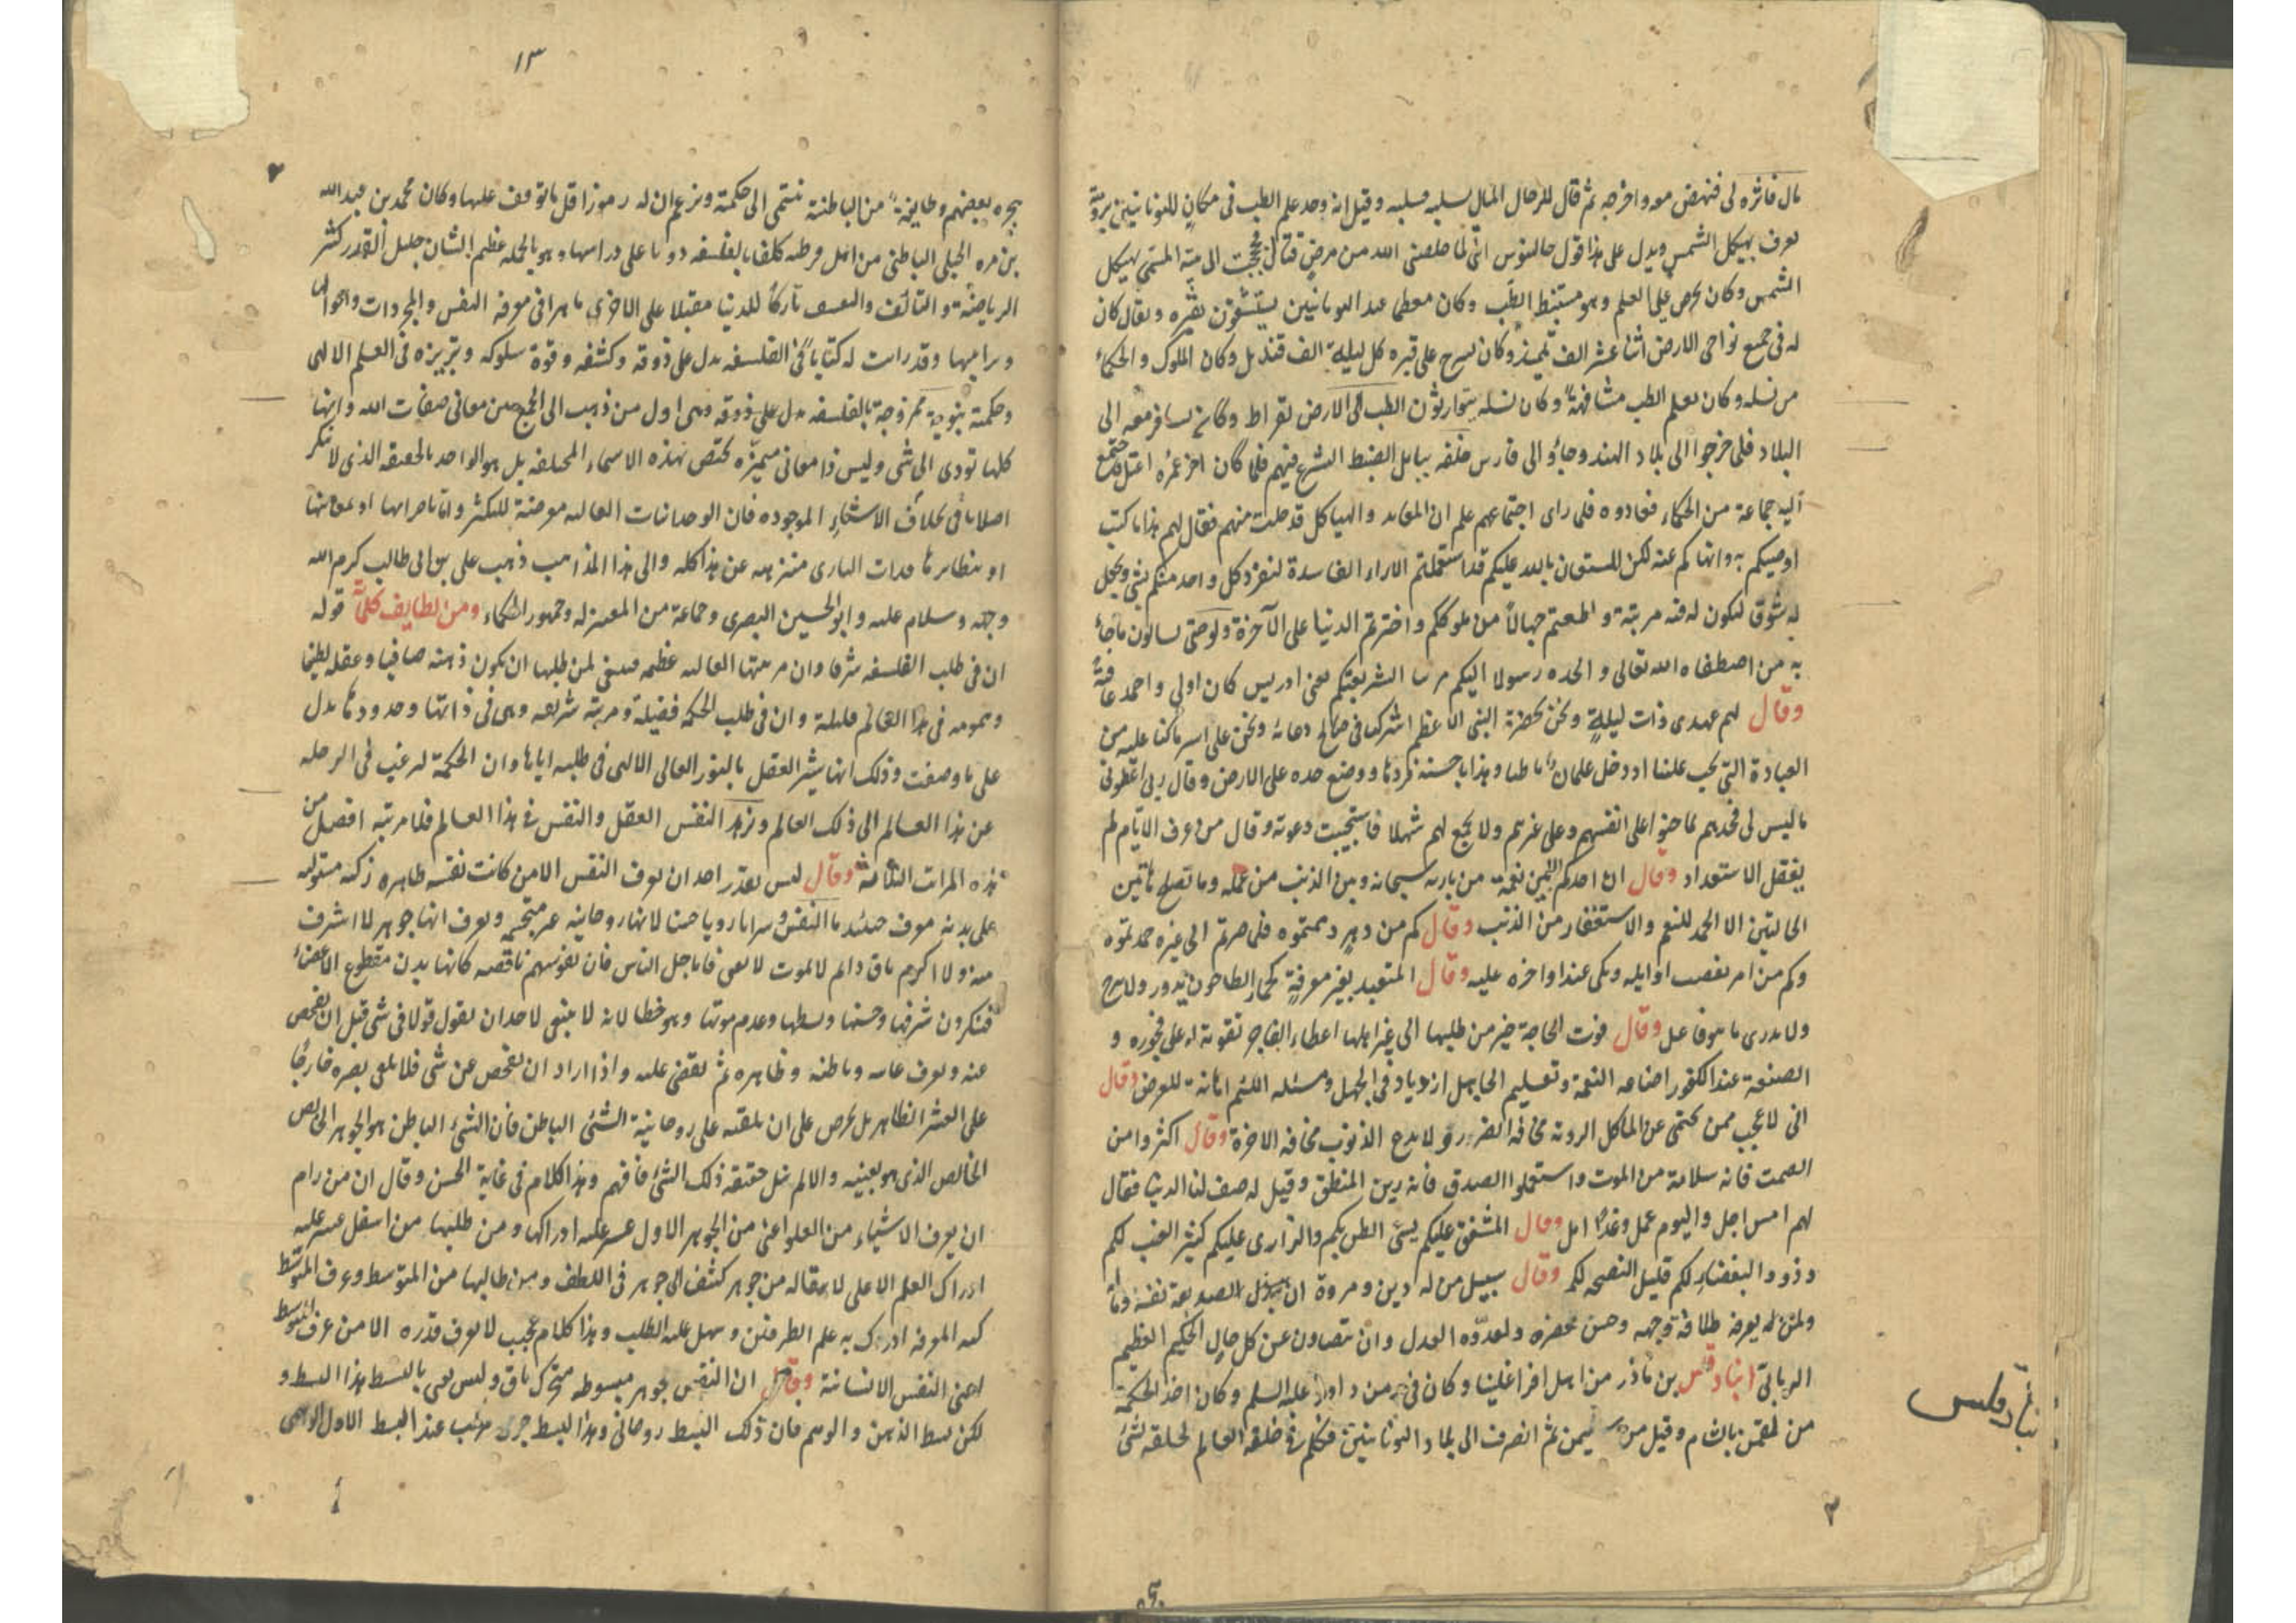 مال فاثره لى فنهض معه واخرجه ثم قال للرجال المال سلبه وقيل انه وجد علم الطب فى مكان لليونانيين برومية
يعرف بهيكل الشمس ويدل على هذا قول جالينوس انى لما خلصنى الله من مرض قتال حججت الى بيته المسمى بهيكل
الشمس وكان يحرص على العلم وهو مستنبط الطب وكان معظما عند اليونانيين يستشفون بقبره ويقال كان
له فى جميع نواحى الارض اثنا عشر الف تلميذ وكان يسرج على قبره كل ليلة الف قنديل وكان الملوك والحكماء
من نسله وكان يعلم الطب مشافهة وكان نسله يتوارثون الطب الى الارض بقراط وكان يسافر معه الى
البلاد فلما خرجوا الى بلاد الهند وجاؤ الى فارس خلفه ببابل لضبط الشرع فيهم فلما كان اخر عمره اعتل فاجتمع
اليه جماعة من الحكماء فعادوه فلما راى اجتماعهم علم ان المعابد والهياكل قد خلت منهم فقال لهم هذا ما كنت
اوصيكم به وانهاكم عنه لكن المستعان بالله عليكم قد استعملتم الاراء الفاسدة لتفرد كل واحد منكم بشى ويجعل
له شوق ليكون له فيه مرتبة واطعتم جهالا من ملوككم واخترتم الدنيا على الآخرة
به من اصطفاه الله تعالى واتخذه رسولا اليكم يعنى ادريس كان اولى واحمد عاقبة
وقال لهم عهدى ذات ليلة ونحن بحضرة النبى الاعظم اشركنا فى صالح دعائه ونحن على اسر ما كنا عليه من
العبادة التى يجب علينا اذ دخل غلمان ووضع خده على الارض وقال ربى اعطونى
ما ليس لى فخذهم بما جنوا على انفسهم وعلى غيرهم ولا تجمع لهم شملا فاستجيبت دعوته وقال من عرف الايام لم
يغفل الاستعداد وقال ان احدكم بين نعمة من باريه سبحانه وبين الذنب من عمله وما تصلح هاتين
الحالتين الا الحمد للمنعم والاستغفار من الذنب وقال كم من دهر ذممتموه فلما صرتم الى غيره حمدتموه
وكم من امر بغضت اوايله وبكى عند اواخره عليه وقال المتعبد بغير معرفة كحمار الطاحون يدور ولا يبرح
ولا يدرى ما هو فاعل وقال فوت الحاجة خير من طلبها الى غير اهلها اعطاء الفاجر تقوية له على فجوره و
الصنعة عند الكفور اضاعه النعمة وتعليم الجاهل ازدياد فى الجهل ومسئله اللئيم اهانة للعرض وقال
انى لاعجب ممن يحتمى عن المآكل الردية مخافة الضرر ولا يدع الذنوب مخافة الاخرة وقال اكثروا من
الصمت فانه سلامة من الموت واستعملوا الصدق فانه زين المنطق وقيل له صف لنا الدنيا فقال
لهم امس اجل واليوم عمل وغدا امل وقال المشفق عليكم يسئ الظن بكم والزارى عليكم كثير العتب لكم
وذووا البغضاء لكم قليل النصيحة لكم وقال سبيل من له دين ومروة ان يبذل لصديقه نفسه وماله
ولمن له يعرفه طلاقة وجهه وحسن محضره ولعدوه العدل وان يتصاون عن كل حال الحكيم العظيم
الربانى انبادقلس بن نادر من اهل اقراغلينا وكان فى زمن داود عليه السلم وكان اخذ الحكمة
من لقمن بالشام وقيل من سليمن ثم انصرف الى بلاد اليونانيين فتكلم فى خلقة العالم
انبادقلس
١٣
يهجره بعضهم وطايفة من الباطنية تنتمى الى حكمته وتزعم ان له رموزا قل ما توقف عليها وكان محمد بن عبد الله
بن مره الجبلى الباطنى من اهل قرطبه كلفا بفلسفته دؤبا على دراسها وهو بالجمله عظيم الشان جليل القدر كثير
الرياضة والتآلف والتعسف تاركا للدنيا مقبلا على الاخرى ماهرا فى معرفة النفس والمجردات واحوالها
وقد رايت له كتابا فى الفلسفه يدل على ذوقه وكشفه وقوة سلوكه وتبريزه فى العلم الالهى
وحكمته ممزوجة بالفلسفه يدل على ذوقه وهى اول من ذهب الى الجمع بين معانى صفات الله وانها
كلها تؤدى الى شى وليس ذا معانى متميزه تختص بهذه الاسماء المختلفه بل هو الواحد بالحقيقه الذى لا يتكثر
اصلا بخلاف الاشياء الموجوده فان الوحدانيات العاليه معرضة للتكثر واما باجزائها او بمعانيها
او بنظايرها وذات البارى متنزهه عن هذا كله والى هذا المذهب ذهب على بن ابى طالب كرم الله
وجهه وسلام عليه وابو الحسين البصرى وجماعة من المعتزله وجمهور الحكماء ومن لطايف كلامه قوله
ان فى طلب الفلسفه شرفا وان مرتبتها العاليه عظيمه فينبغى لمن طلبها ان يكون ذهنه صافيا وعقله لطيفا
وهمومه فى هذا العالم قليلة وان فى طلب الحكمه فضيلة ومرتبة شريفه وهى فى ذاتها وحدودها تدل
على ما وصفت وذلك انها تبشر العقل بالنور العالى الالهى فى طلبه اياها وان الحكمة ترغب فى الرحله
عن هذا العالم الى ذلك العالم وتزهد النفس العقل والنفس فى هذا العالم فلا مرتبة افضل من
هذه المراتب الثلاثة وقال ليس يقدر احد ان يعرف النفس الا من كانت نفسه طاهره زكيه مستوليه
على بدنه يعرف حينئذ ما النفس لانها روحانيه غير متجسمه ويعرف انها جوهر لا اشرف
منه ولا اكرم باق دايم لا يموت لا يفنى فاما جل الناس فان نفوسهم ناقصه كانها بدن مقطوع الاعضاء
فينكرون شرفها وحسنها وبسطها وعدم موتها وهو خطا لانه لا ينبغى لاحد ان يقول قولا فى شى قبل ان يفحص
عنه ويعرف غايته وباطنه وظاهره ثم يقضى عليه واذا اراد ان يفحص عن شى فلا يلقى بصره خارجا
على القشر الظاهر بل يحرص على ان يلقيه على روحانية الشئ الباطن فان الشئ الباطن هو الجوهر
الخالص الذى هو بعينه والا لم ينل حقيقة ذلك الشئ فافهم وهذا كلام فى غاية الحسن وقال ان من رام
ان يعرف الاشياء من العلو اعنى من الجوهر الاول عسر عليه ادراكها ومن طلبها من اسفل عسر عليه
ادراك العلم الاعلى لانتقاله من جوهر كثيف الى جوهر فى اللطف ومن طلبها من المتوسط وعرف المتوسط
كنه المعرفة ادرك به علم الطرفين وسهل عليه الطلب وهذا كلام عجيب لا يعرف قدره الا من عرف المتوسط
اعنى النفس الانسانية وقال ان النفس جوهر مبسوطه متحرك باق وليس يعنى بالبسط هذا البسط و
لكن بسط الذهن والوهم فان ذلك البسط روحانى وهذا البسط جرمى مركب عند البسط الاول